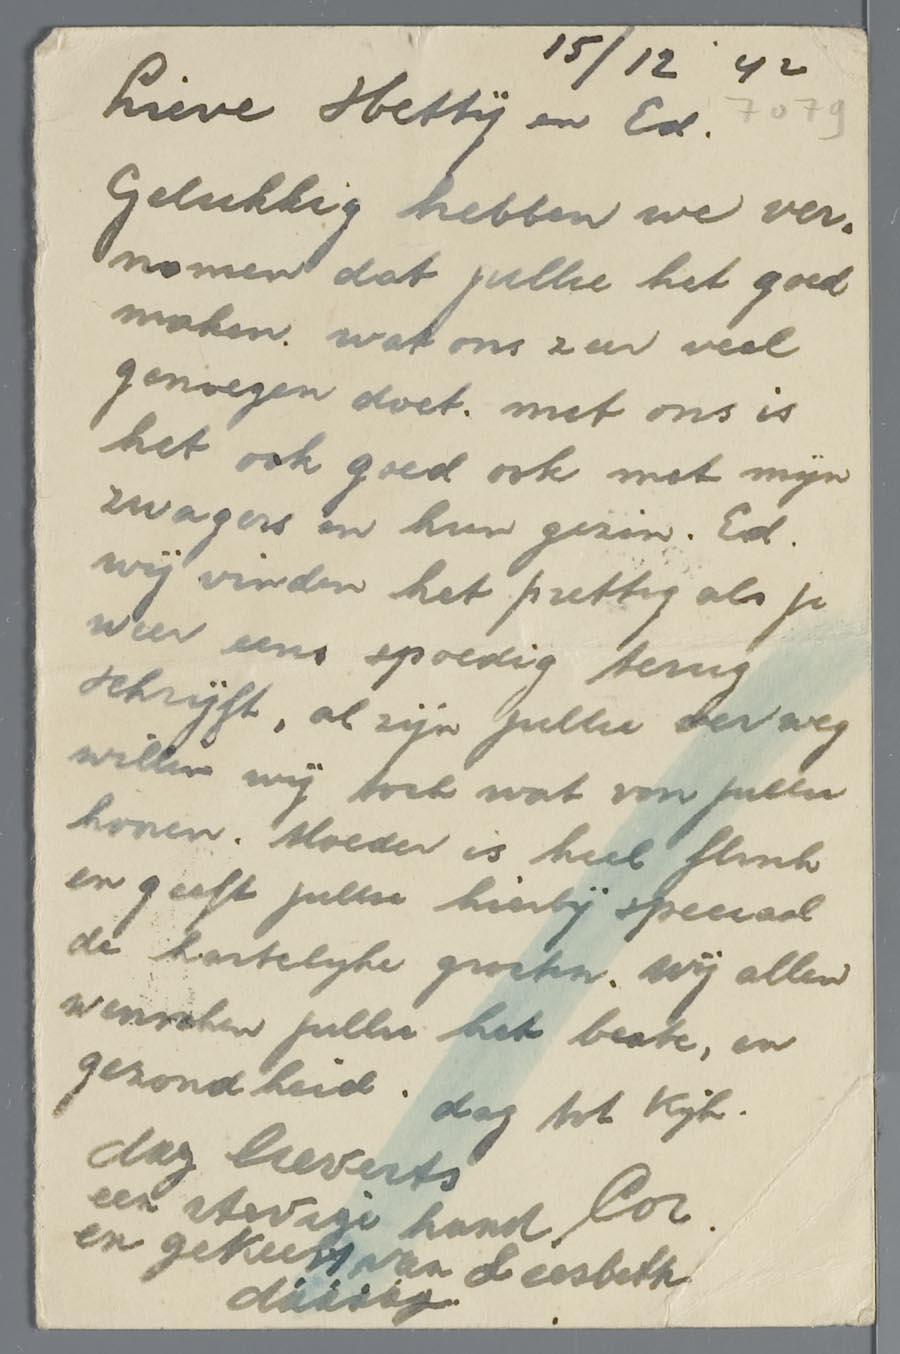 15/12 '42
Lieve Hettÿ en Ed. 7079
Gelukkig hebben we ver-
nomen dat jullie het goed
maken. wat ons zeer veel
genoegen doet. met ons is
het ook goed ook met mijn
zwagers en hun gezin. Ed.
wÿ vinden het prettig als je
weer eens spoedig terug
schrÿft, al zÿn jullie ver weg
willen wÿ toch wat van jullie
hooren. Moeder is heel flink
en geeft jullie hierbÿ speciaal
de hartelyke groeten. Wÿ allen
wenschen jullie het beste, en
gezondheid. dag tot Kÿk.
dag lieverts Cor.
een stevige hand
en van Liesbeth